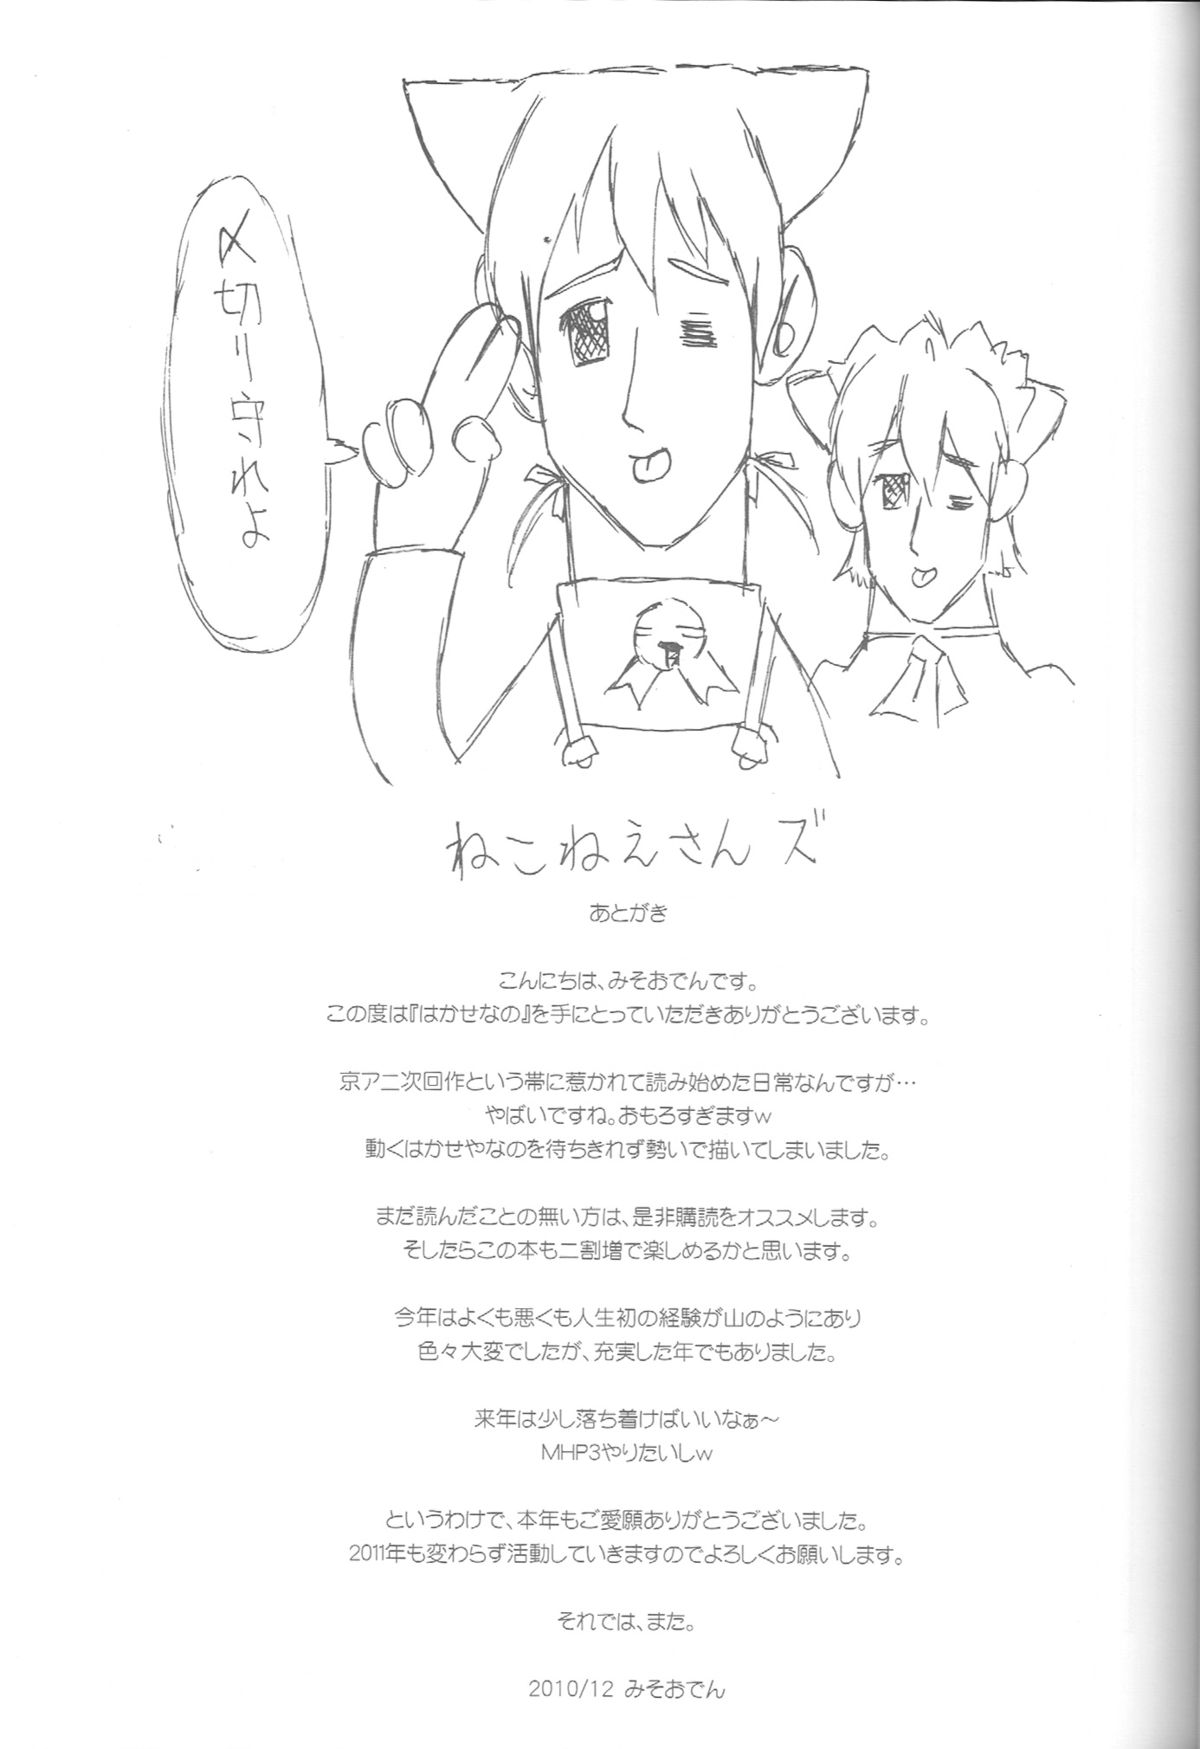 〆切り守れよ
ねこねえさんズ
あとがき
こんにちは、みそおでんです。
この度は『はかせなの』を手にとっていただきありがとうございます。
京アニ次回作という帯に惹かれて読み始めた日常なんですが…
やばいですね。おもろすぎますw
動くはかせやなのを待ちきれず勢いで描いてしまいました。
まだ読んだことの無い方は、是非購読をオススメします。
そしたらこの本も二割増で楽しめるかと思います。
今年はよくも悪くも人生初の経験が山のようにあり
色々大変でしたが、充実した年でもありました。
来年は少し落ち着けばいいなぁ〜
MHP3やりたいしw
というわけで、本年もご愛願ありがとうございました。
2011年も変わらず活動していきますのでよろしくお願いします。
それでは、また。
2010/12 みそおでん